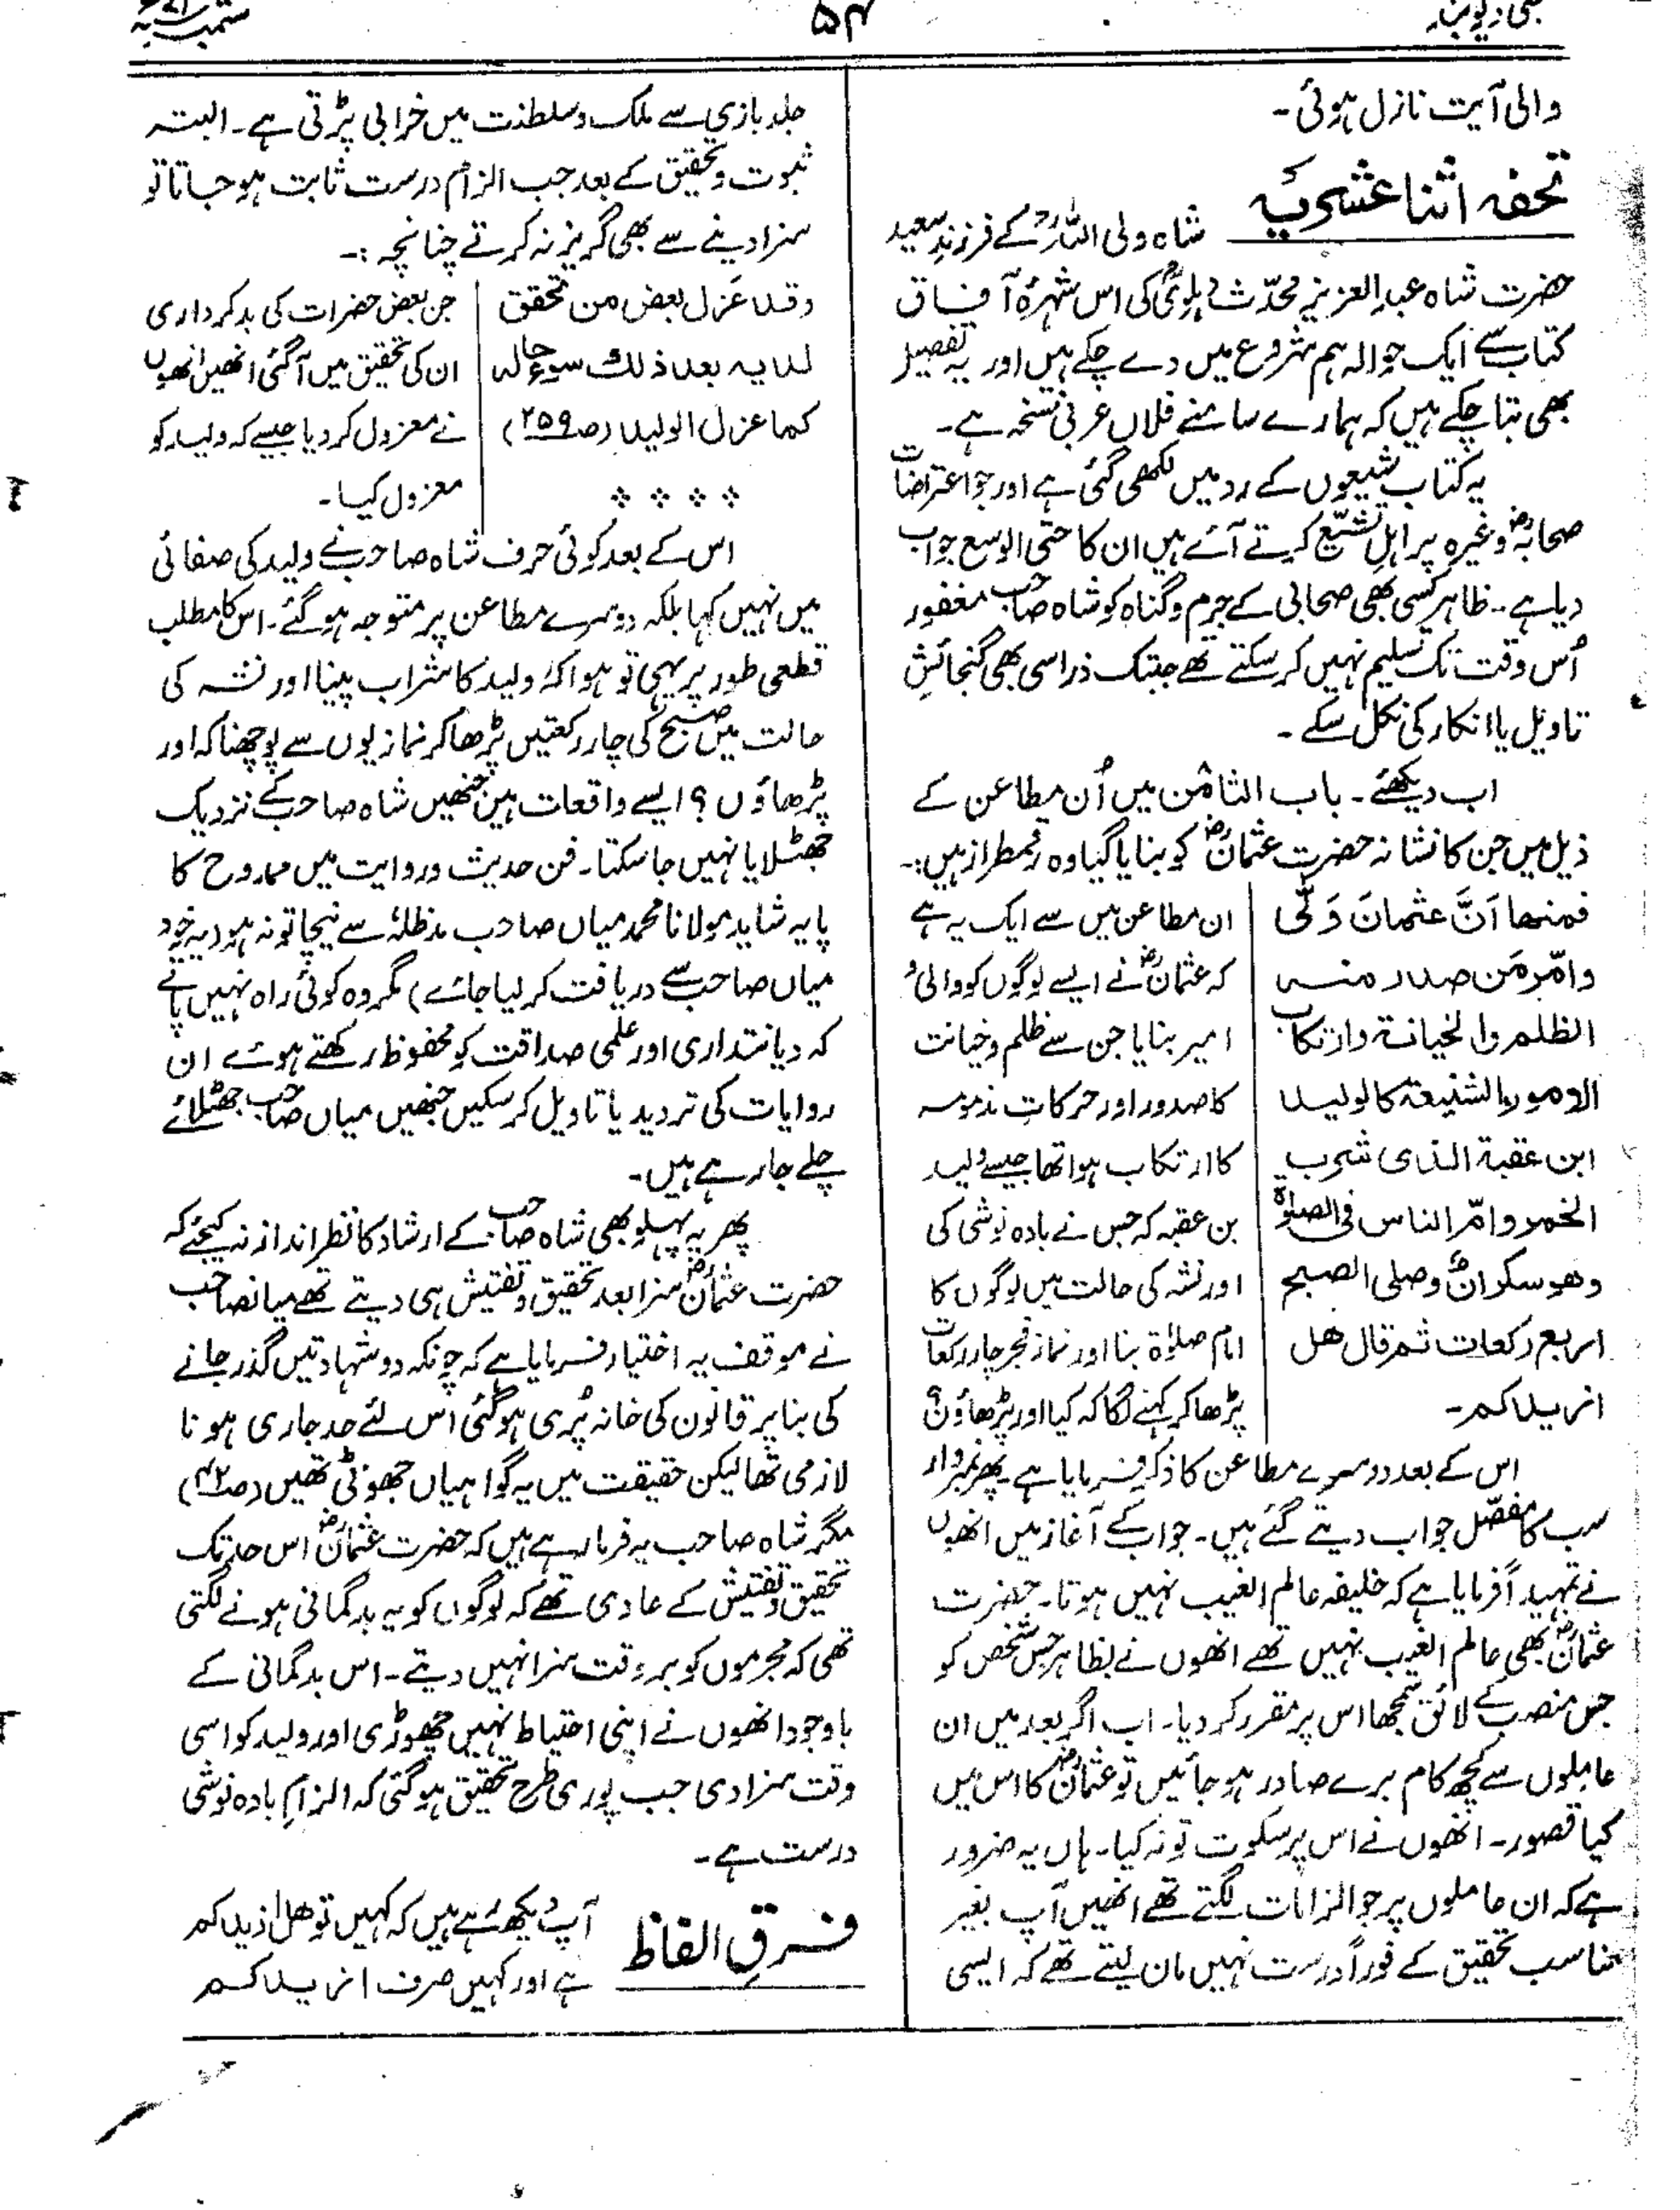 ۵۴
والی آیت نازل ہوئی۔
تحفہ اثنا عشریہ
شاہ ولی اللہؒ کے فرزندِ سعید
حضرت شاہ عبدالعزیز محدّث دہلویؒ کی اس شہرۂ آفاق
کتاب سے ایک حوالہ ہم شروع میں دے چکے ہیں اور یہ تفصیل
بھی بتا چکے ہیں کہ ہمارے سامنے فلاں عربی نسخہ ہے۔
یہ کتاب شیعوں کے رد میں لکھی گئی ہے اور جو اعتراضات
صحابہؓ وغیرہ پر اہلِ تشیّع کرتے آئے ہیں ان کا حتی الوسع جواب
دیا ہے۔ ظاہر کسی بھی صحابی کے جرم و گناہ کو شاہ صاحب مغفور
اُس وقت تک تسلیم نہیں کر سکتے تھے جبتک ذرا سی بھی گنجائش
تاویل یا انکار کی نکل سکے۔
اب دیکھئے۔ باب الثامن میں اُن مطاعن کے
ذیل میں جن کا نشانہ حضرت عثمانؓ کو بنایا گیا وہ رقمطراز ہیں:۔
فمنھا اَنَّ عثمانَ وَلّٰی
وامّر مَن صدر منہ
الظلم والخیانۃ وارتکاب
الامور الشنیعۃ کالولید
ابن عقبۃ الذی شرب
الخمر وامّ الناس فی الصلوٰۃ
وھو سکران وصلی الصبح
اربع رکعات ثم قال ھل
ازیدکم۔
ان مطاعن میں سے ایک یہ ہے
کہ عثمانؓ نے ایسے لوگوں کو والی و
امیر بنایا جن سے ظلم و خیانت
کا صدور اور حرکاتِ مذمومہ
کا ارتکاب ہوا تھا جیسے ولید
بن عقبہ کہ جس نے بادہ نوشی کی
اور نشہ کی حالت میں لوگوں کا
امام صلوٰۃ بنا اور نماز فجر چار رکعات
پڑھا کر کہنے لگا کہ کیا اور پڑھاؤں؟
اس کے بعد دوسرے مطاعن کا ذکر فرمایا ہے۔ پھر نمبروار
سب کا مفصّل جواب دیتے گئے ہیں۔ جواب کے آغاز میں انھوں
نے تمہیداً فرمایا ہے کہ خلیفہ عالم الغیب نہیں ہوتا۔ حضرت
عثمانؓ بھی عالم الغیب نہیں تھے انھوں نے بظاہر جس شخص کو
جس منصب کے لائق سمجھا اس پر مقرر کر دیا۔ اب اگر بعد میں ان
عاملوں سے کچھ کام برے صادر ہو جائیں تو عثمانؓ کا اس میں
کیا قصور۔ انھوں نے اس پر سکوت تو نہ کیا۔ ہاں یہ ضرور
ہے کہ ان عاملوں پر جو الزامات لگتے تھے انھیں آپ بغیر
مناسب تحقیق کے فوراً درست نہیں مان لیتے تھے کہ ایسی
جلد بازی سے ملک و سلطنت میں خرابی پڑتی ہے۔ البتہ
ثبوت و تحقیق کے بعد جب الزام درست ثابت ہو جاتا تو
سزا دینے سے بھی گریز نہ کرتے چنانچہ:۔
وقد عَزل بعض من تحقق
لدیہ بعد ذلک سوء حالہ
کما عزل الولید (ص۲۵۹)
جن بعض حضرات کی بدکرداری
ان کی تحقیق میں آ گئی انھیں انھوں
نے معزول کر دیا جیسے کہ ولید کو
معزول کیا۔
اس کے بعد کوئی حرف شاہ صاحب نے ولید کی صفائی
میں نہیں کہا بلکہ دوسرے مطاعن پر متوجہ ہو گئے۔ اس کا مطلب
قطعی طور پر یہی تو ہوا کہ ولید کا شراب پینا اور نشہ کی
حالت میں صبح کی چار رکعتیں پڑھا کر نمازیوں سے پوچھنا کہ اور
پڑھاؤں؟ ایسے واقعات ہیں جنھیں شاہ صاحب کے نزدیک
جھٹلایا نہیں جا سکتا۔ فن حدیث و روایت میں ممدوح کا
پایہ شاید مولانا محمد میاں صاحب مدظلہٗ سے نیچا تو نہ ہو (یہ خود
میاں صاحب سے دریافت کر لیا جائے) مگر وہ کوئی راہ نہیں پاتے
کہ دیانتداری اور علمی صداقت کو محفوظ رکھتے ہوئے ان
روایات کی تردید یا تاویل کر سکیں جنھیں میاں صاحب جھٹلائے
چلے جا رہے ہیں۔
پھر یہ پہلو بھی شاہ صاحب کے ارشاد کا نظر انداز نہ کیجئے کہ
حضرت عثمانؓ سزا بعد تحقیق و تفتیش ہی دیتے تھے میانصاحب
نے موقف یہ اختیار فرمایا ہے کہ چونکہ دو شہادتیں گذر جانے
کی بنا پر قانون کی خانہ پُری ہو گئی اس لئے حد جاری ہونا
لازمی تھا لیکن حقیقت میں یہ گواہیاں جھوٹی تھیں (ص۴۲)
مگر شاہ صاحب یہ فرما رہے ہیں کہ حضرت عثمانؓ اس حد تک
تحقیق و تفتیش کے عادی تھے کہ لوگوں کو یہ بدگمانی ہونے لگتی
تھی کہ مجرموں کو بر وقت سزا نہیں دیتے۔ اس بدگمانی کے
باوجود انھوں نے اپنی احتیاط نہیں چھوڑی اور ولید کو اسی
وقت سزا دی جب پوری طرح تحقیق ہو گئی کہ الزامِ بادہ نوشی
درست ہے۔
فرقِ الفاظ
آپ دیکھ رہے ہیں کہ کہیں تو ھل ازیدکم
ہے اور کہیں صرف ازیدکم